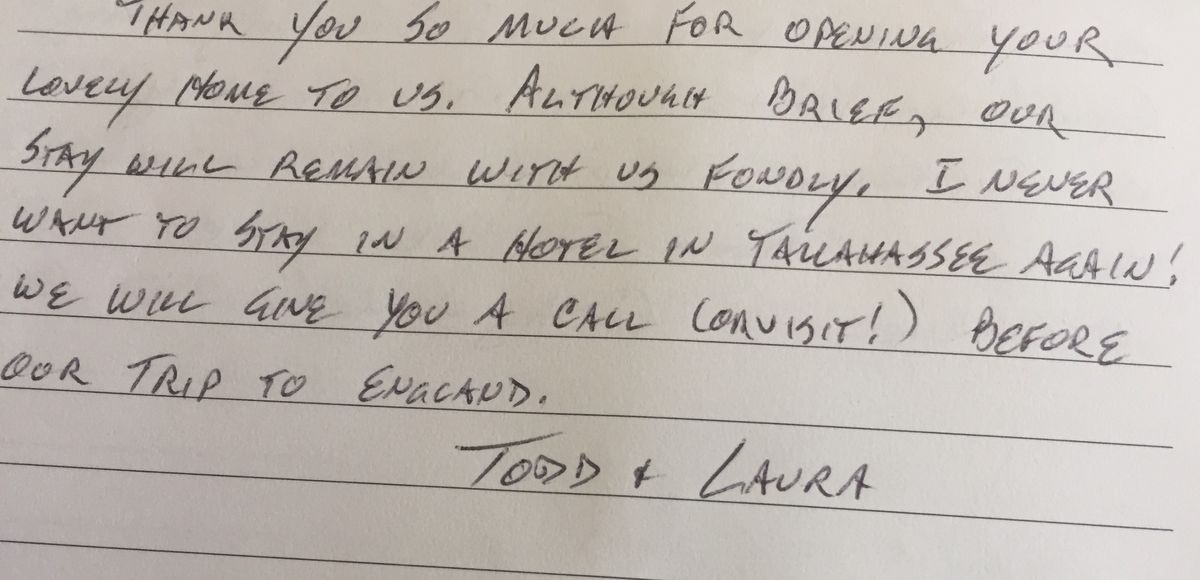 THANK YOU SO MUCH FOR OPENING YOUR
LOVELY HOME TO US. ALTHOUGH BRIEF, OUR
STAY WILL REMAIN WITH US FONDLY. I NEVER
WANT TO STAY IN A HOTEL IN TALLAHASSEE AGAIN!
WE WILL GIVE YOU A CALL (OR VISIT!) BEFORE
OUR TRIP TO ENGLAND.
TODD & LAURA